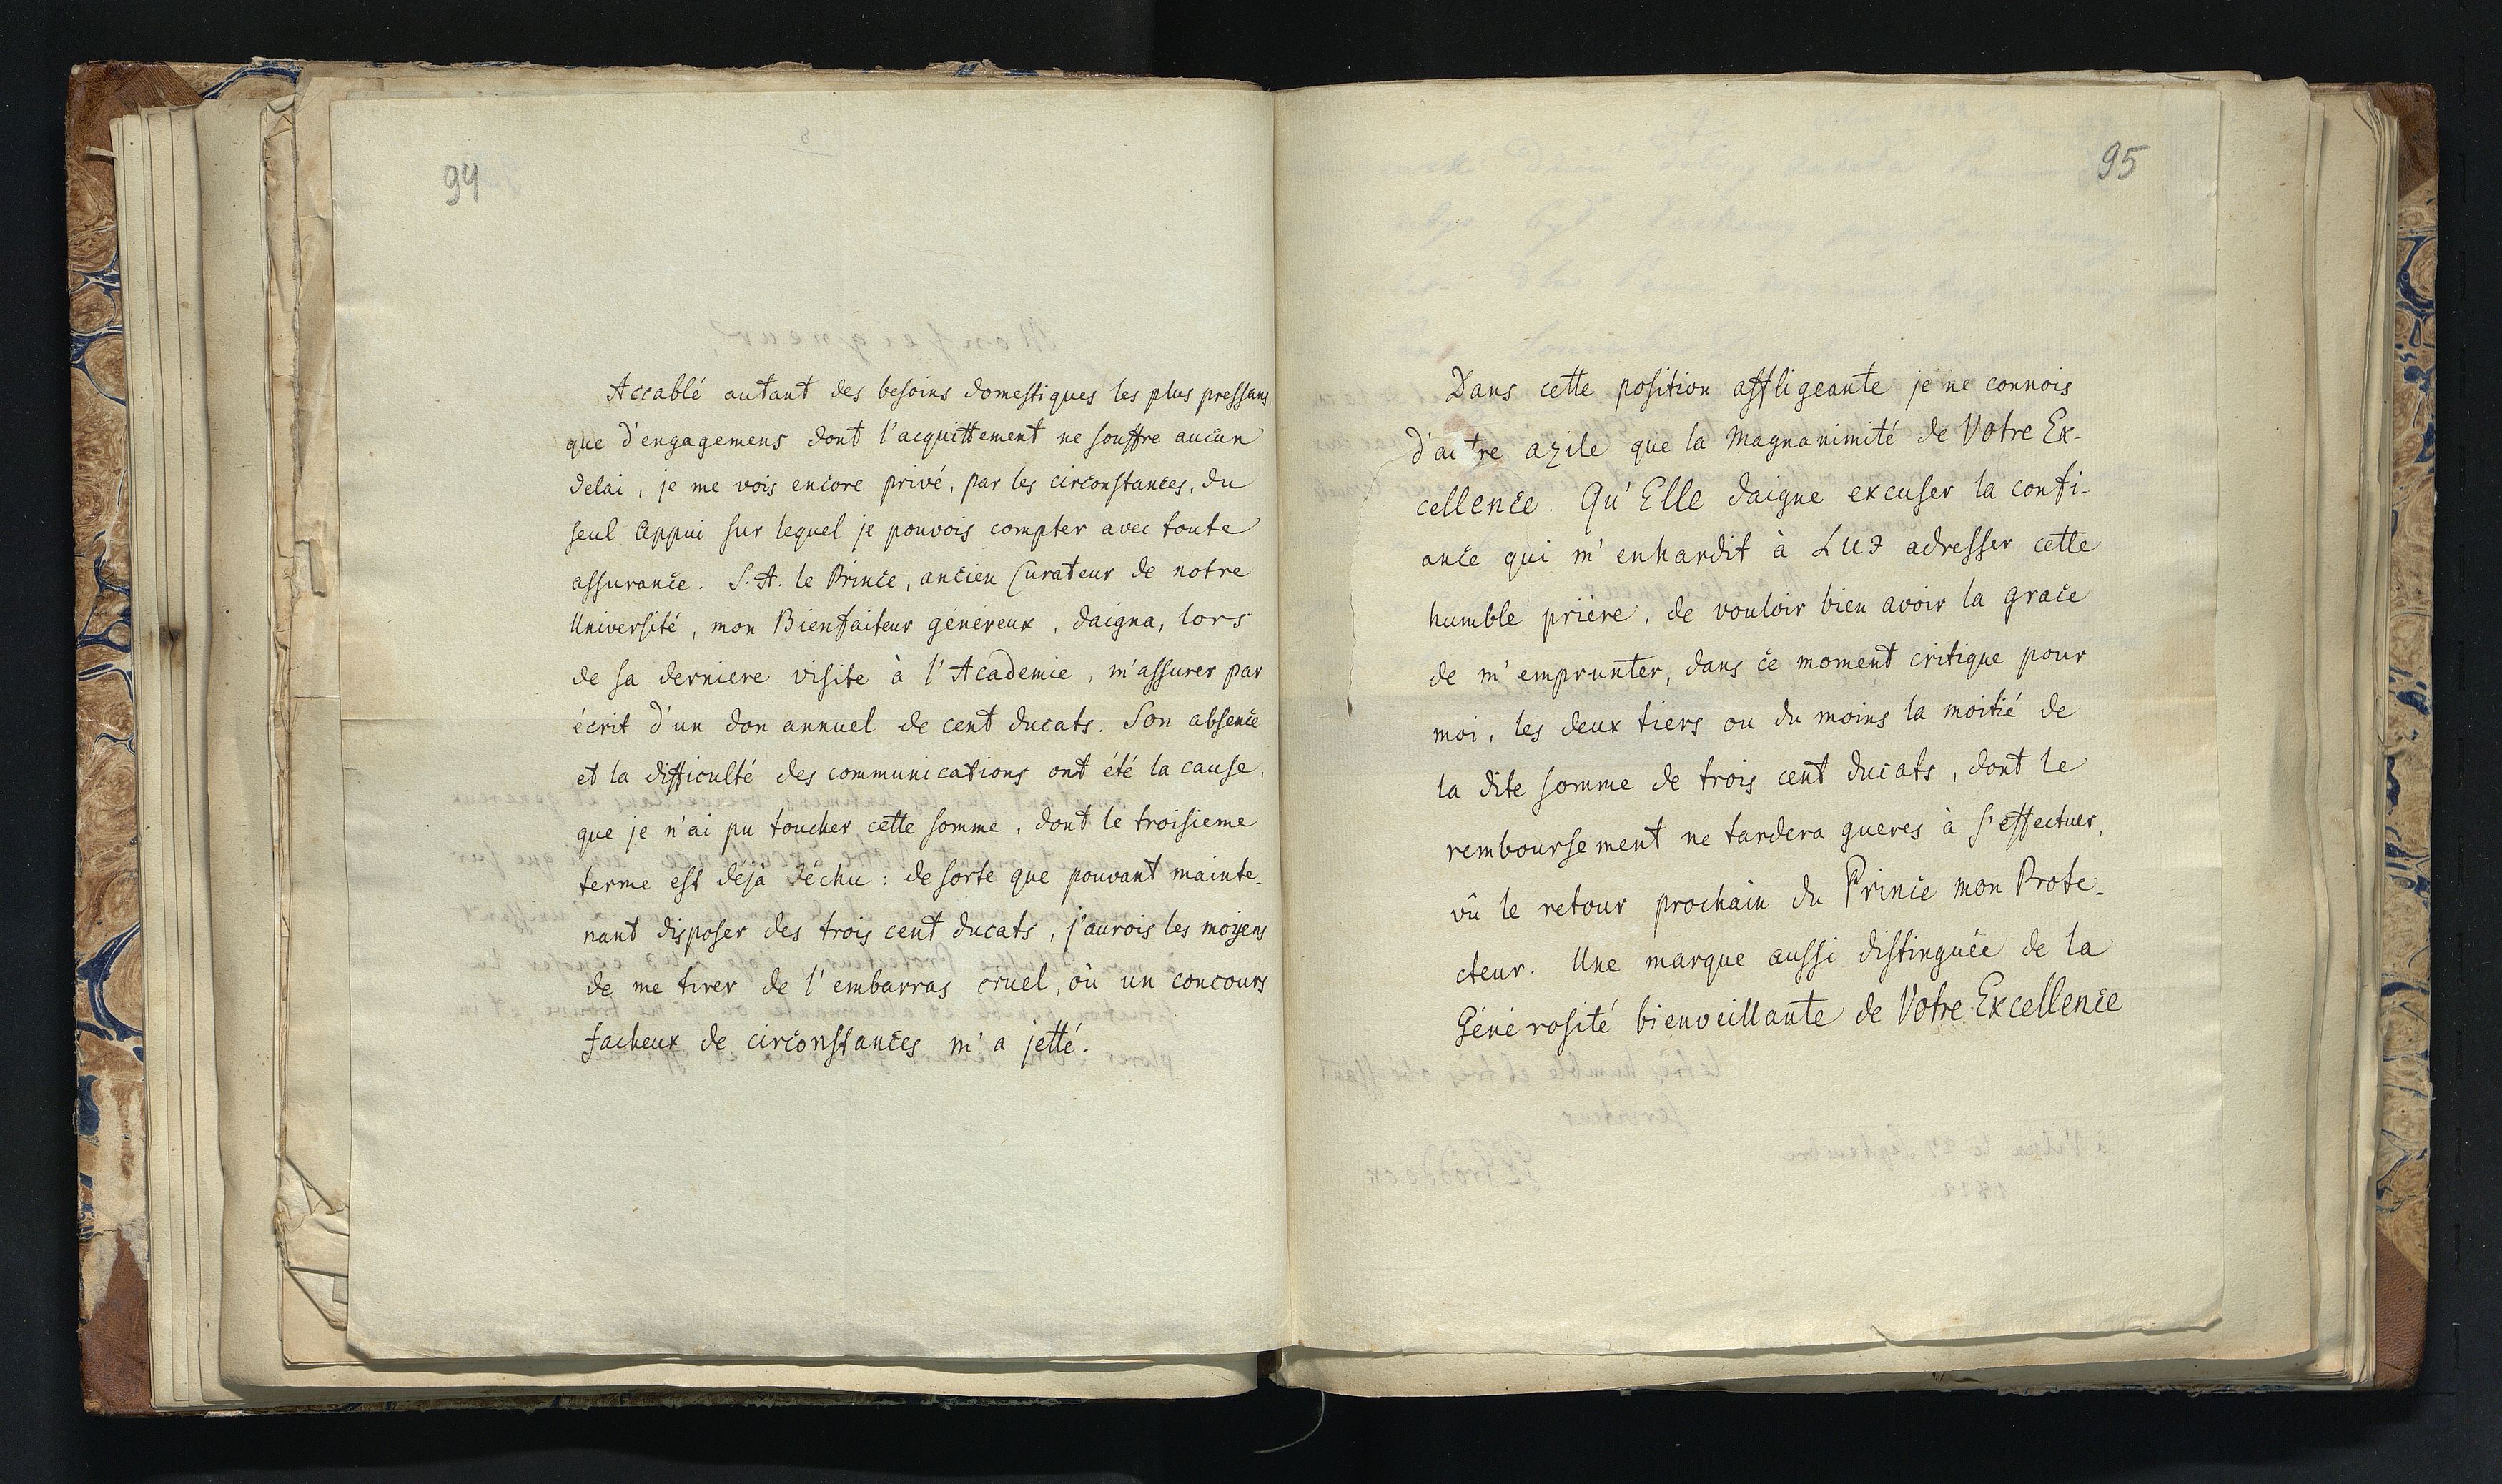 94
Accablé autant des besoins domestiques les plus pressans,
que d'engagemens dont l'acquittement ne souffre aucun
delai, je me vois encore privé, par les circonstances, du
seul Appui sur lequel je pouvois compter avec toute
assurance. S. A. le Prince, ancien Curateur de notre
Université, mon Bienfaiteur généreux, daigna, lors
de sa derniere visite à l'Academie, m'assurer par
écrit d'un don annuel de cent ducats. Son absence
et la difficulté des communications ont été la cause,
que je n'ai pu toucher cette somme, dont le troisieme
terme est déjà déchu: de sorte que pouvant mainte-
nant disposer des trois cent ducats, j'aurois les moyens
de me tirer de l'embarras cruel, où un concours
facheux de circonstances m'a jetté.
95
Dans cette position affligeante je ne connois
d'autre azile que la Magnanimité de Votre Ex-
cellence. Qu'Elle daigne excuser la confi-
ance qui m'enhardit à LUI adresser cette
humble priére, de vouloir bien avoir la grace
de m'emprunter, dans ce moment critique pour
moi, les deux tiers ou du moins la moitié de
la dite somme de trois cent ducats, dont le
remboursement ne tardera gueres à s'effectuer,
vû le retour prochain du Prince mon Prote-
cteur. Une marque aussi distinguée de la
Générosité bienveillante de Votre Excellence